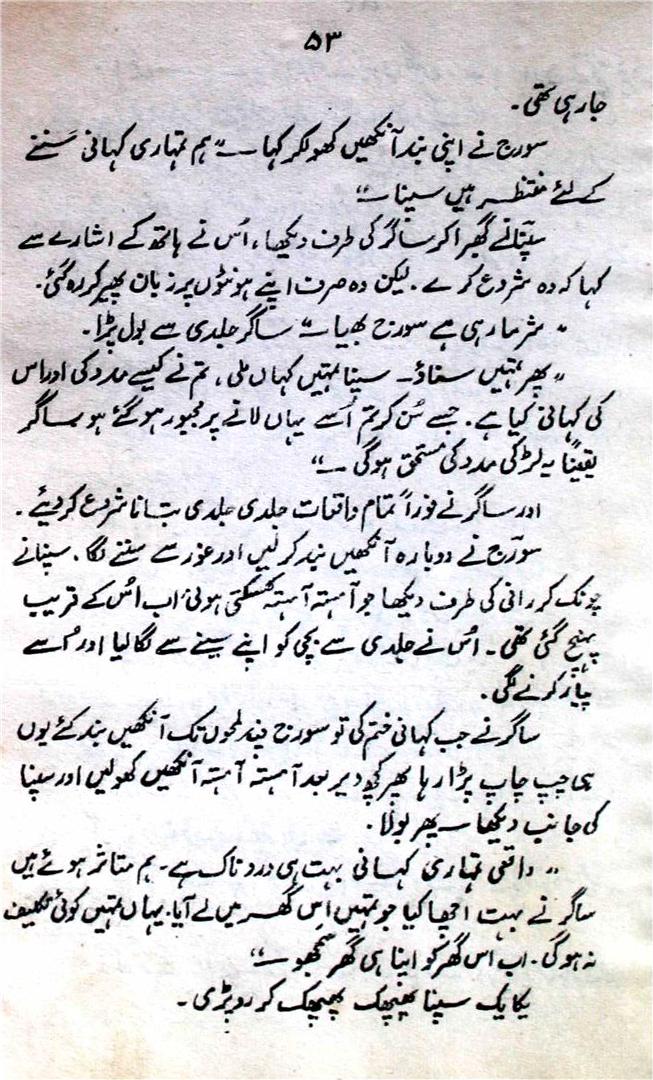 ۵۳
جا رہی تھی۔
سورج نے اپنی بند آنکھیں کھولکر کہا ــ "ہم تمہاری کہانی سننے
کے لئے منتظر ہیں سپنا ــ"
سپنا نے گھبرا کر ساگر کی طرف دیکھا، اُس نے ہاتھ کے اشارے سے
کہا کہ وہ شروع کرے۔ لیکن وہ صرف اپنے ہونٹوں پر زبان پھیر کر رہ گئی۔
"شرما رہی ہے سورج بھیا ــ" ساگر جلدی سے بول پڑا۔
"پھر تمہیں سناؤ ــ سپنا تمہیں کہاں ملی، تم نے کیسے مدد کی اور اس
کی کہانی کیا ہے۔ جسے سُن کر تم اُسے یہاں لانے پر مجبور ہو گئے ہو ساگر
یقیناً یہ لڑکی مدد کی مستحق ہوگی ــ"
اور ساگر نے فوراً تمام واقعات جلدی جلدی بتانا شروع کر دیئے۔
سورج نے دوبارہ آنکھیں بند کر لیں اور غور سے سننے لگا۔ سپنا نے
چونک کر رانی کی طرف دیکھا جو آہستہ آہستہ کھسکتی ہوئی اب اُس کے قریب
پہنچ گئی تھی۔ اُس نے جلدی سے بچی کو اپنے سینے سے لگا لیا اور اُسے
پیار کرنے لگی۔
ساگر نے جب کہانی ختم کی تو سورج چند لمحوں تک آنکھیں بند کئے یوں
ہی چپ چاپ پڑا رہا پھر کچھ دیر بعد آہستہ آہستہ آنکھیں کھولیں اور سپنا
کی جانب دیکھا ــ پھر بولا۔
"واقعی تمہاری کہانی بہت ہی دردناک ہے۔ ہم متاثر ہوئے ہیں
ساگر نے بہت اچھا کیا جو تمہیں اِس گھر میں لے آیا۔ یہاں تمہیں کوئی تکلیف
نہ ہوگی۔ اب اس گھر کو اپنا ہی گھر سمجھو ــ"
یکایک سپنا پھپھک پھپھک کر رو پڑی۔